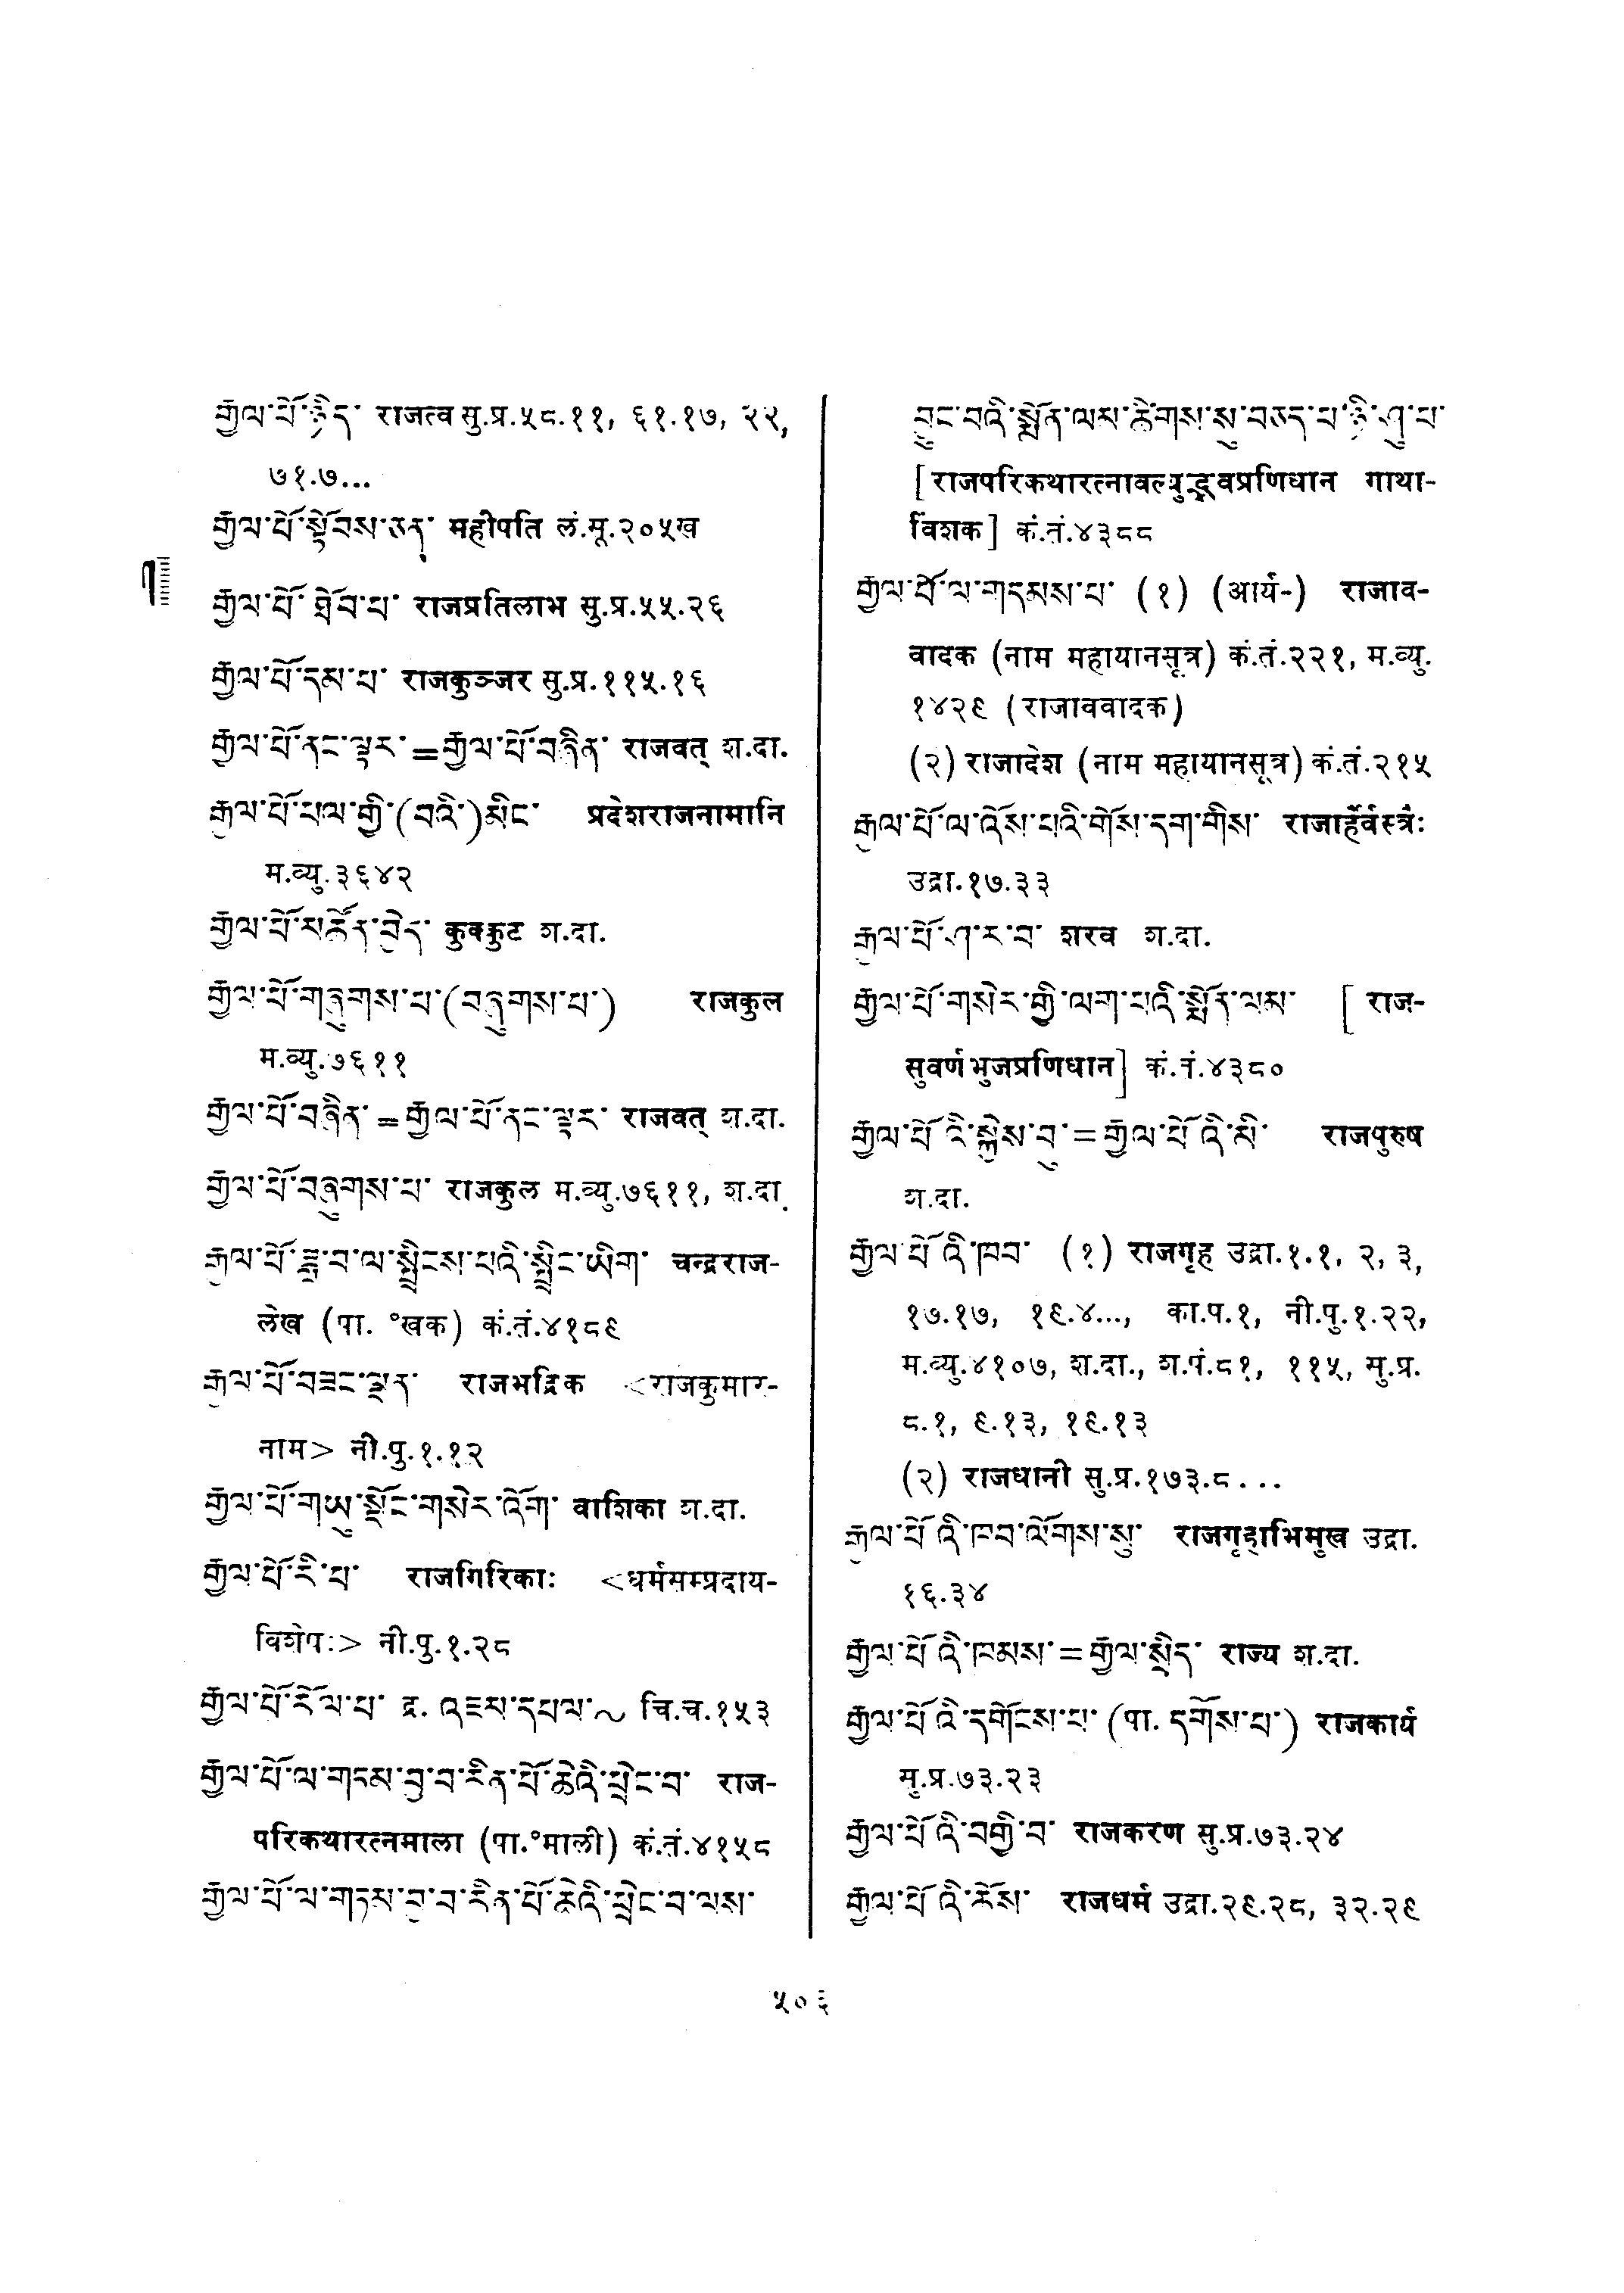 རྒྱལ་པོ་ཉིད་ राजत्व सु.प्र.५८.११, ६१.१७, २२,
७१.७...
རྒྱལ་པོ་སྟོབས་ཅན་ महीपति लं.सू.२०५ख
རྒྱལ་པོ་ ཐོབ་པ་ राजप्रतिलाभ सु.प्र.५५.२६
རྒྱལ་པོ་དམ་པ་ राजकुञ्जर सु.प्र.११५.१६
རྒྱལ་པོ་ནང་ལྟར་=རྒྱལ་པོ་བཞིན་ राजवत् श.दा.
རྒྱལ་པོ་ཕལ་གྱི་(བའི་)མིང་ प्रदेशराजनामानि
म.व्यु.३६४२
རྒྱལ་པོ་མཚོན་བྱེད་ कुक्कुट श.दा.
རྒྱལ་པོ་གཞུགས་པ་(བཞུགས་པ་) राजकुल
म.व्यु.७६११
རྒྱལ་པོ་བཞིན་=རྒྱལ་པོ་ནང་ལྟར་ राजवत् श.दा.
རྒྱལ་པོ་བཞུགས་པ་ राजकुल म.व्यु.७६११, श.दा.
རྒྱལ་པོ་ཟླ་བ་ལ་སྤྲིངས་པའི་སྤྲིང་ཡིག་ चन्द्रराज-
लेख (पा. °खक) कं.तं.४१८९
རྒྱལ་པོ་བཟང་ལྡན་ राजभद्रिक <राजकुमार-
नाम> नी.पु.१.१२
རྒྱལ་པོ་གཡུ་སྔོང་གསེར་འོག་ वाशिका श.दा.
རྒྱལ་པོ་རི་པ་ राजगिरिकाः <धर्मसम्प्रदाय-
विशेषः> नी.पु.१.२८
རྒྱལ་པོ་རོལ་པ་ द्र. འཇམ་དཔལ་~ चि.च.१५३
རྒྱལ་པོ་ལ་གཏམ་བུ་བ་རིན་པོ་ཆེའི་ཕྲེང་བ་ राज-
परिकथारत्नमाला (पा.°माली) कं.तं.४१५८
རྒྱལ་པོ་ལ་གཏམ་བུ་བ་རིན་པོ་ཆེའི་ཕྲེང་བ་ལས་
བྱུང་བའི་སྨོན་ལམ་ཚིགས་སུ་བཅད་པ་ཉི་ཤུ་པ་
[राजपरिकथारत्नावल्युद्भवप्रणिधान गाथा-
विंशक] कं.तं.४३८८
རྒྱལ་པོ་ལ་གདམས་པ་ (१) (आर्य-) राजाव-
वादक (नाम महायानसूत्र) कं.तं.२२१, म.व्यु.
१४२९ (राजाववादक)
(२) राजादेश (नाम महायानसूत्र) कं.तं.२१५
རྒྱལ་པོ་ལ་འོས་པའི་གོས་དག་གིས་ राजार्हैर्वस्त्रैः
उद्रा.१७.३३
རྒྱལ་པོ་ཤ་ར་བ་ शरव श.दा.
རྒྱལ་པོ་གསེར་གྱི་ལག་པའི་སྨོན་ལམ་ [ राज-
सुवर्णभुजप्रणिधान] कं.तं.४३८०
རྒྱལ་པོ་འི་སྐྱེས་བུ་=རྒྱལ་པོ་འི་མི་ राजपुरुष
श.दा.
རྒྱལ་པོ་འི་ཁབ་ (१) राजगृह उद्रा.१.१, २, ३,
१७.१७, १९.४..., का.प.१, नी.पु.१.२२,
म.व्यु.४१०७, श.दा., श.पं.८१, ११५, सु.प्र.
८.१, ९.१३, १९.१३
(२) राजधानी सु.प्र.१७३.८...
རྒྱལ་པོ་འི་ཁབ་ལོགས་སུ་ राजगृहाभिमुख उद्रा.
१६.३४
རྒྱལ་པོ་འི་ཁམས་=རྒྱལ་སྲིད་ राज्य श.दा.
རྒྱལ་པོ་འི་དགོངས་པ་(पा. དགོས་པ་) राजकार्य
सु.प्र.७३.२३
རྒྱལ་པོ་འི་བགྱི་བ་ राजकरण सु.प्र.७३.२४
རྒྱལ་པོ་འི་ཆོས་ राजधर्म उद्रा.२९.२८, ३२.२९
५०३